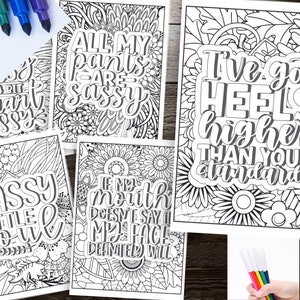 ALL MY
pants
ARE
sassy
I've got
HEELS
higher
THAN YOUR
standards
SASSY
LITTLE
soul
IF MY
mouth
DOESN'T SAY IT
MY FACE
DEFINITELY WILL